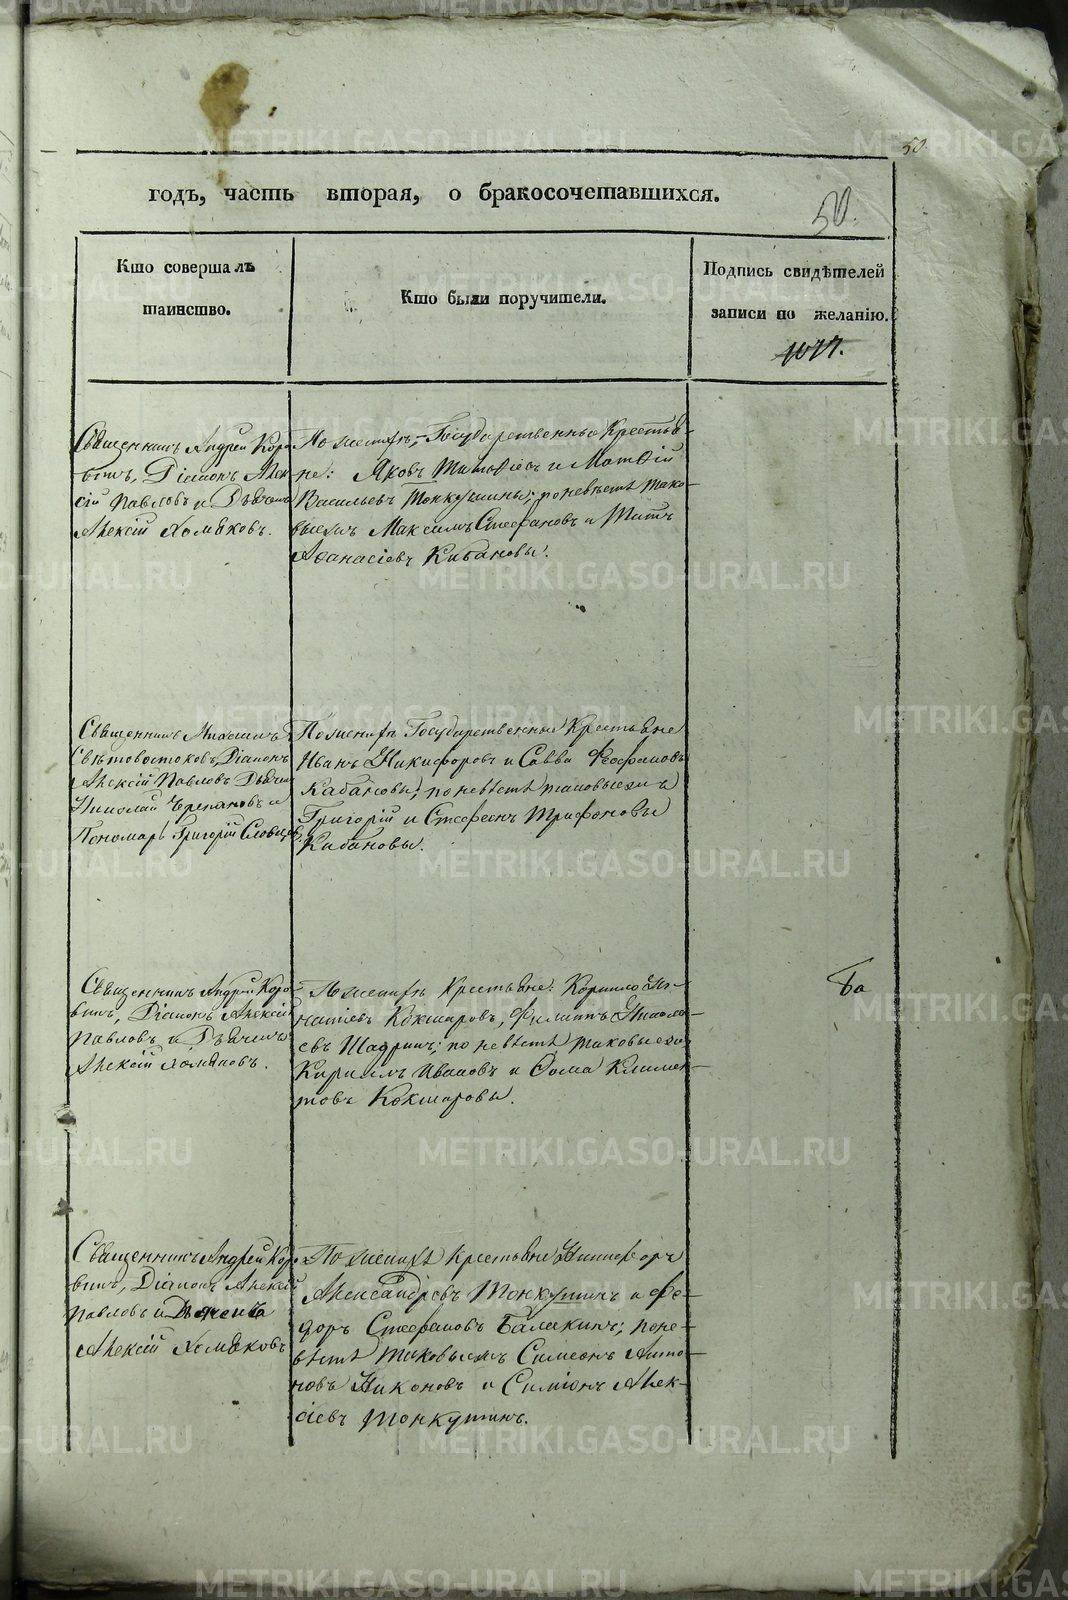 METRIKI.GASO-URAL.RU
50.
годъ, часть вторая, о бракосочетавшихся.
50.
Кто совершалъ
таинство.
Кто были поручители.
Подпись свидѣтелей
записи по желанію.
1077.
Священникъ Андрей Коро-
винъ, Діаконъ Алек-
сій Павловъ и Дьячекъ
Алексій Хомяковъ.
По женихѣ, Государственные Крестья-
не: Яковъ Тимоѳеевъ и Матѳій
Васильевъ Тонкушины; по невѣстѣ тако-
вые жъ Максимъ Стефановъ и Титъ
Аѳанасіевъ Кабановы.
Священникъ Михаилъ
Свѣтовостоковъ, Діаконъ
Алексій Павловъ Дьячекъ
Николай Черепановъ и
Пономарь Григорій Словцовъ
По женихѣ Государственные Крестьяне
Иванъ Никифоровъ и Савва Ѳеофановъ
Кабановы; по невѣстѣ таковые жъ
Григорій и Стефанъ Трифоновы
Кабановы.
Священникъ Андрей Коро-
винъ, Діаконъ Алексій
Павловъ и Дьячекъ
Алексій Хомяковъ.
По женихѣ Крестьяне: Корнило Иг-
натіевъ Кокшаровъ, Филиппъ Никола-
евъ Шадринъ; по невѣстѣ таковые жъ
Кириллъ Ивановъ и Ѳома Климен-
товъ Кокшаровы.
Ба
Священникъ Андрей Коро-
винъ, Діаконъ Алексій
Павловъ и Дьячекъ
Алексій Хомяковъ
По женихѣ Крестьяне Никифоръ
Александровъ Тонкушинъ и Ѳе-
доръ Стефановъ Балакинъ; по не-
вѣстѣ таковые жъ Симеонъ Анто-
новъ Никоновъ и Симіонъ Алек-
сіевъ Тонкушинъ.